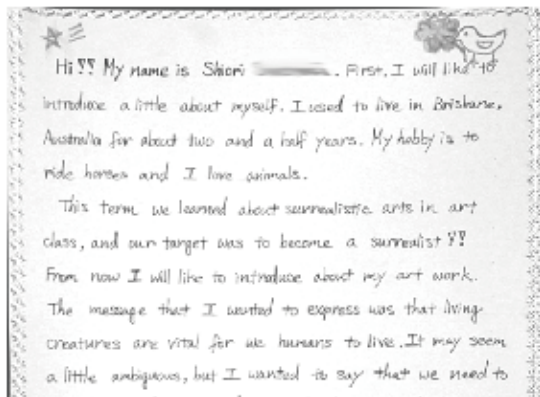 Hi!! My name is Shiori . First, I will like to
introduce a little about myself. I used to live in Brisbane,
Australia for about two and a half years. My hobby is to
ride horses and I love animals.
This term we learned about surrealistic arts in art
class, and our target was to become a surrealist!!
From now I will like to introduce about my art work.
The message that I wanted to express was that living
creatures are vital for we humans to live. It may seem
a little ambiguous, but I wanted to say that we need to